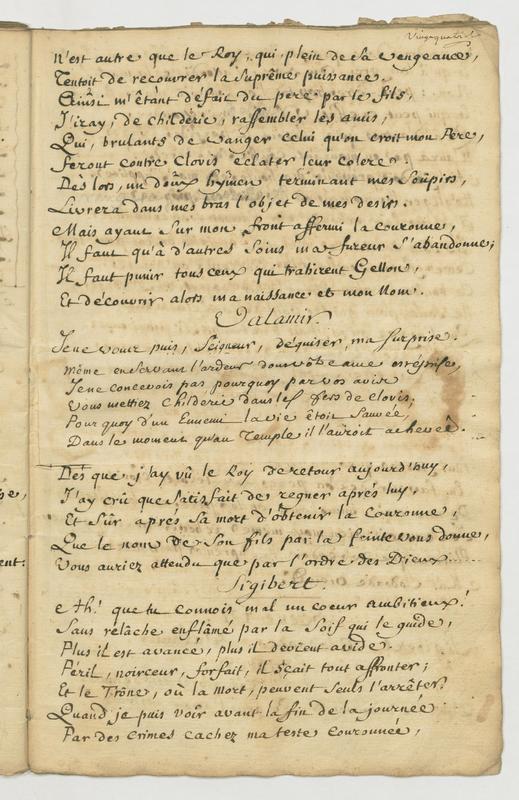 Vingt quatre
N'est autre que le Roy, qui plein de sa vengeance,
Tentoit de recouvrer la suprême puissance.
Ainsi m'étant défait du pere par le fils,
J'iray, de childeric, rassembler les amis,
Qui, brulants de vanger celui qu'on croit mon Pere,
Feront contre Clovis éclater leur colere.
Dès lors, un doux hymen terminant mes soupirs,
Livrera dans mes bras l'objet de mes desirs.
Mais ayant sur mon front affermi la couronne,
Il faut qu'à d'autres soins ma fureur s'abandonne;
Il faut punir tous ceux qui trahirent Gellon,
Et découvrir alors ma naissance et mon Nom.
Valamir.
Je ne vous puis, Seigneur, déguiser, ma surprise.
Même en servant l'ardeur dont vôtre ame est éprise,
Je ne concevois pas pourquoy par vos avis
Vous mettiez Childeric dans les fers de Clovis.
Pourquoy d'un Ennemi la vie étoit sauvée,
Dans le moment qu'au Temple il l'auroit achevée.
Dès que j'ay vû le Roy de retour aujourd'huy,
J'ay crû que satisfait de regner aprés luy,
Et sûr aprés sa mort d'obtenir la couronne,
Que le nom de son fils par la feinte vous donne,
Vous auriez attendu que par l'ordre des Dieux.....
Sigibert.
Ah! que tu connois mal un coeur ambitieux!
Sans relâche enflâmé par la soif qui le guide,
Plus il est avancé, plus il devient avide.
Péril, noirceur, forfait, il sçait tout affronter;
Et le Trône, ou la mort, peuvent seuls l'arrêter.
Quand je puis voir avant la fin de la journée
Par des crimes cachez ma teste couronnée,